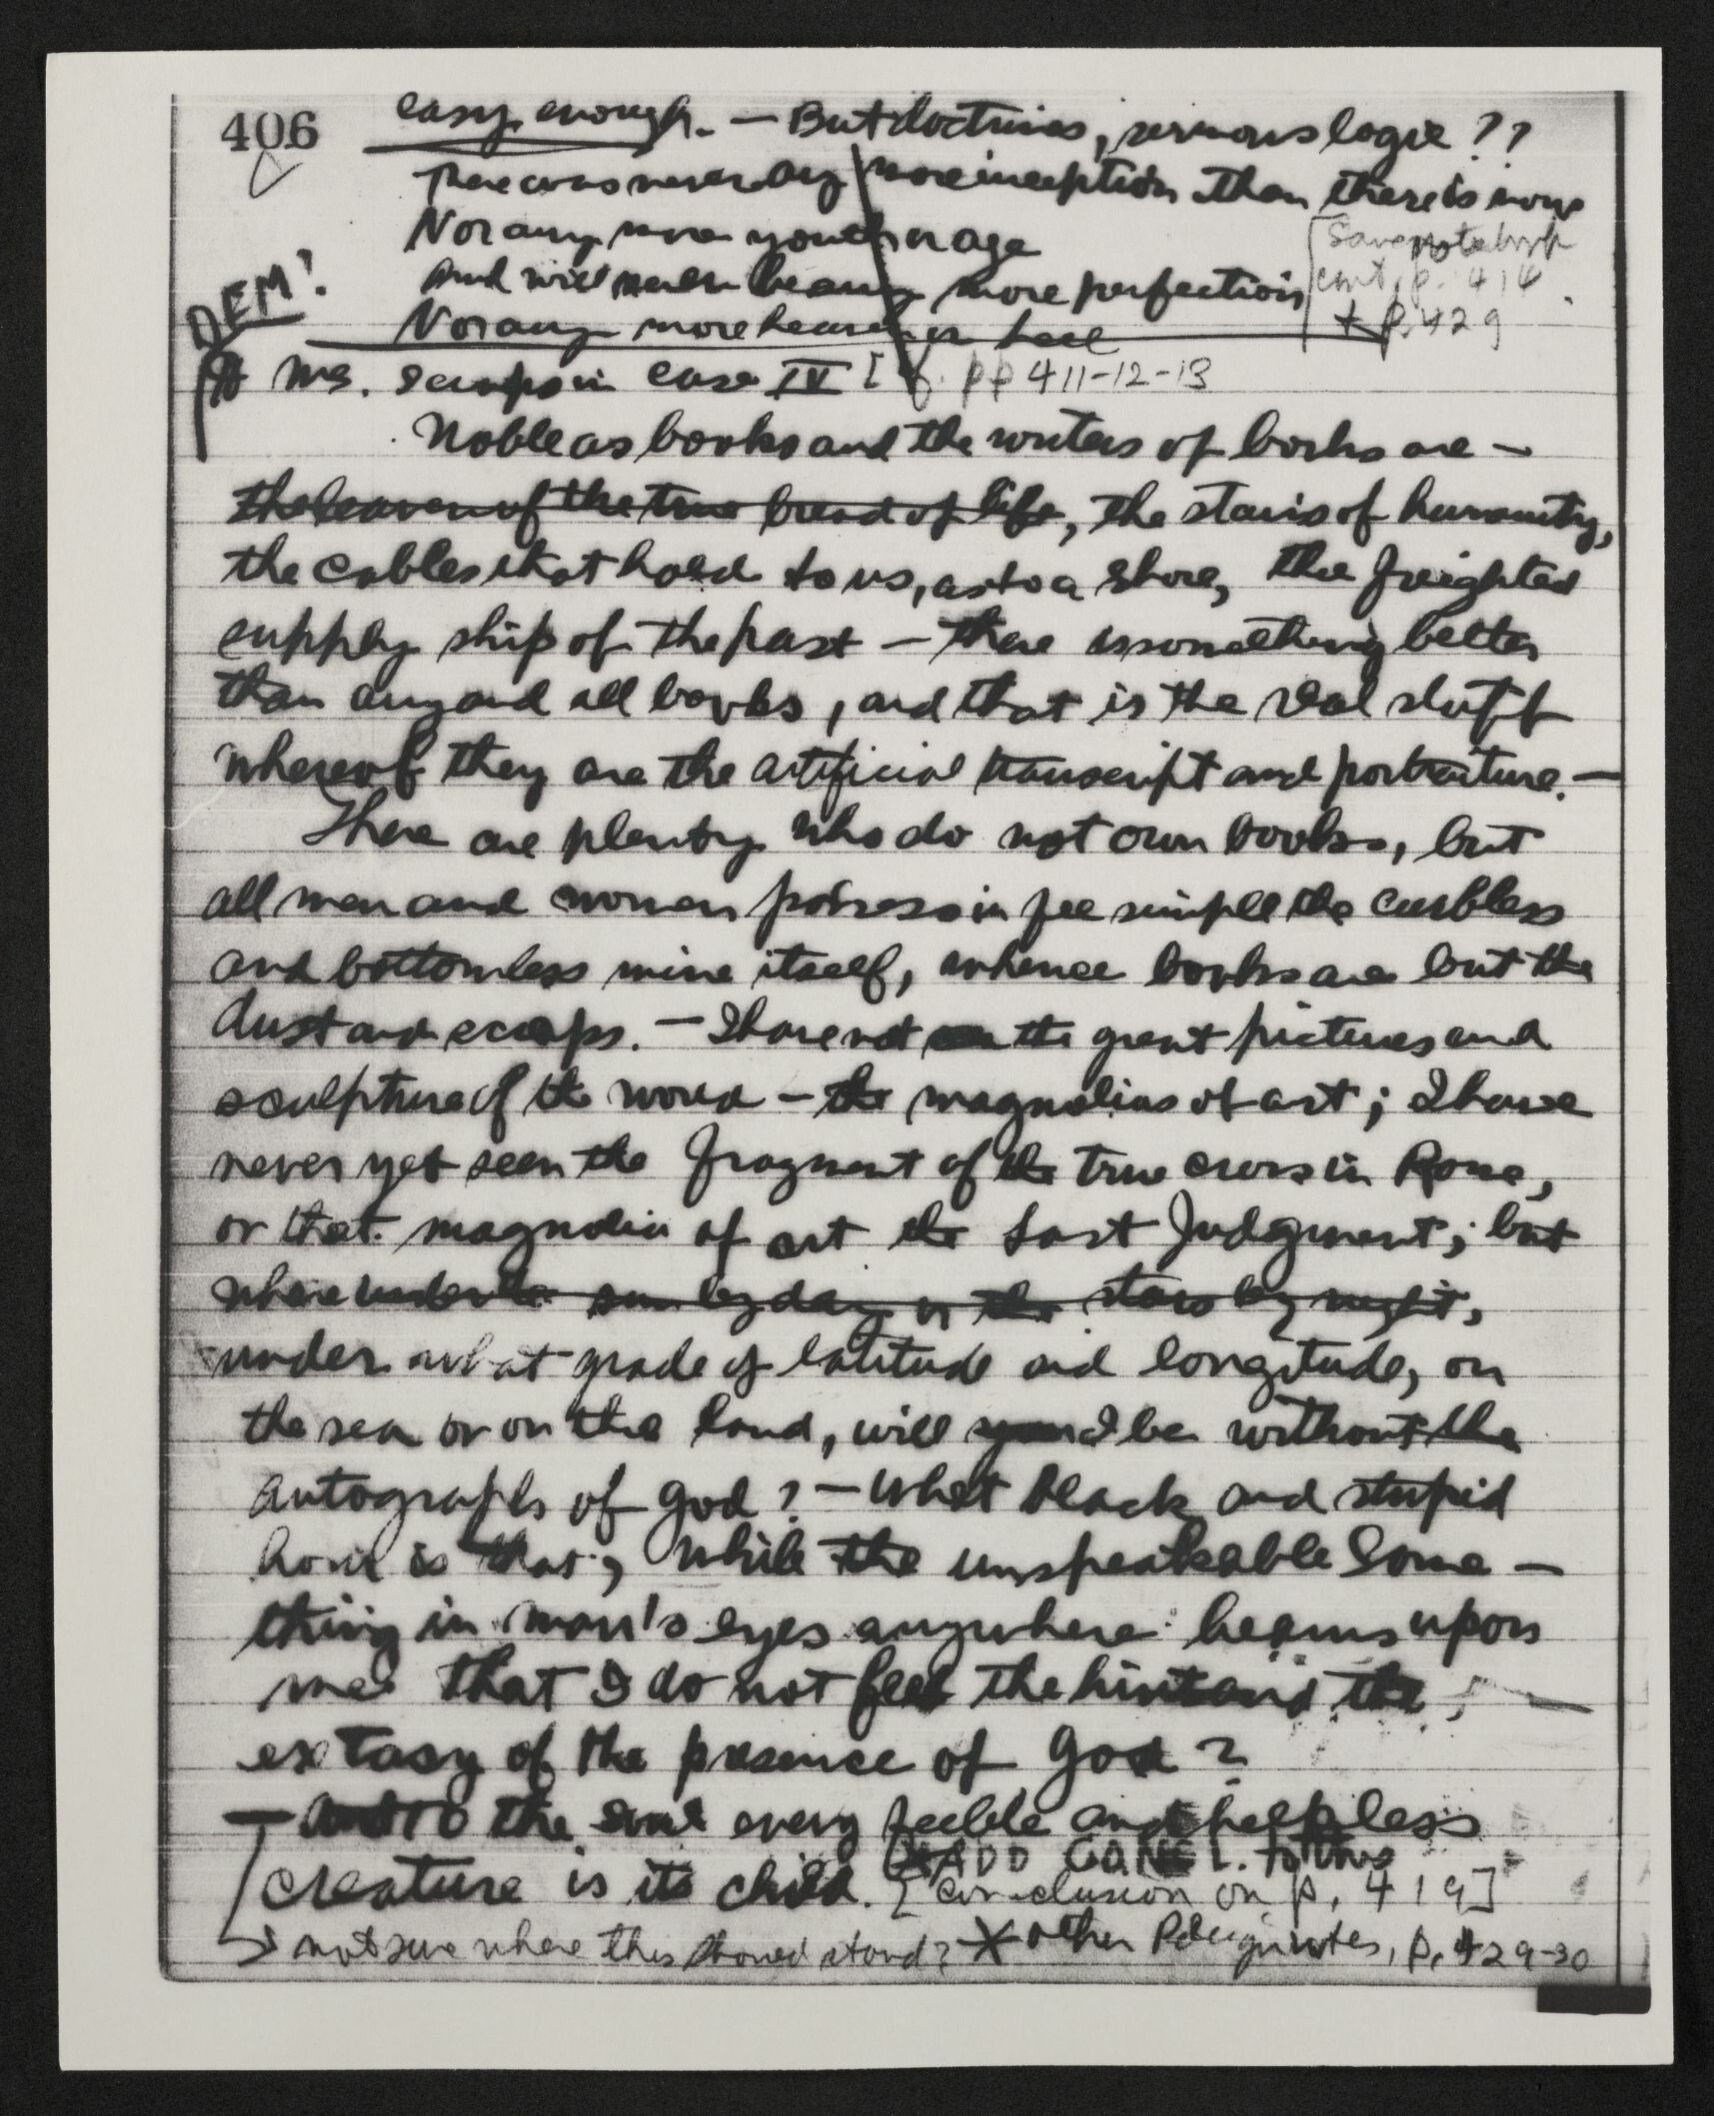 406 easy enough. — But doctrines, sermons logic ??
There was never any more inception than there is now
Nor any more youth or age
And will never be any more perfection
Nor any more heaven or hell
[Save
cont. p. 414
+ p. 429
DEM!
MS. scraps in Case IV [cf. pp 411-12-13
Noble as books and the writers of books are —
the leaven of the true bread of life, the stairs of humanity,
the cables that hold to us, as to a shore, the freighted
supply ship of the past — there is something better
than any and all books, and that is the real stuff
whereof they are the artificial transcript and portraiture. —
There are plenty who do not own books, but
all men and women possess in fee simple the curbless
and bottomless mine itself, whence books are but the
dust and scraps. — I have not the great pictures and
sculpture of the world — the magnolias of art; I have
never yet seen the fragment of the true cross in Rome,
or that magnolia of art the Last Judgment; but
where under the sun by day or the stars by night,
under what grade of latitude and longitude, on
the sea or on the land, will I be without the
autographs of God? — What black and stupid
hour is that, while the unspeakable Some-
thing in man's eyes anywhere beams upon
me that I do not feel the hint and the
extasy of the presence of God?
— And to the soul every feeble and helpless
creature is its child. [ADD CANCEL. to this
conclusion on p. 419]
not sure where this should stand? X other notes, p. 429-30